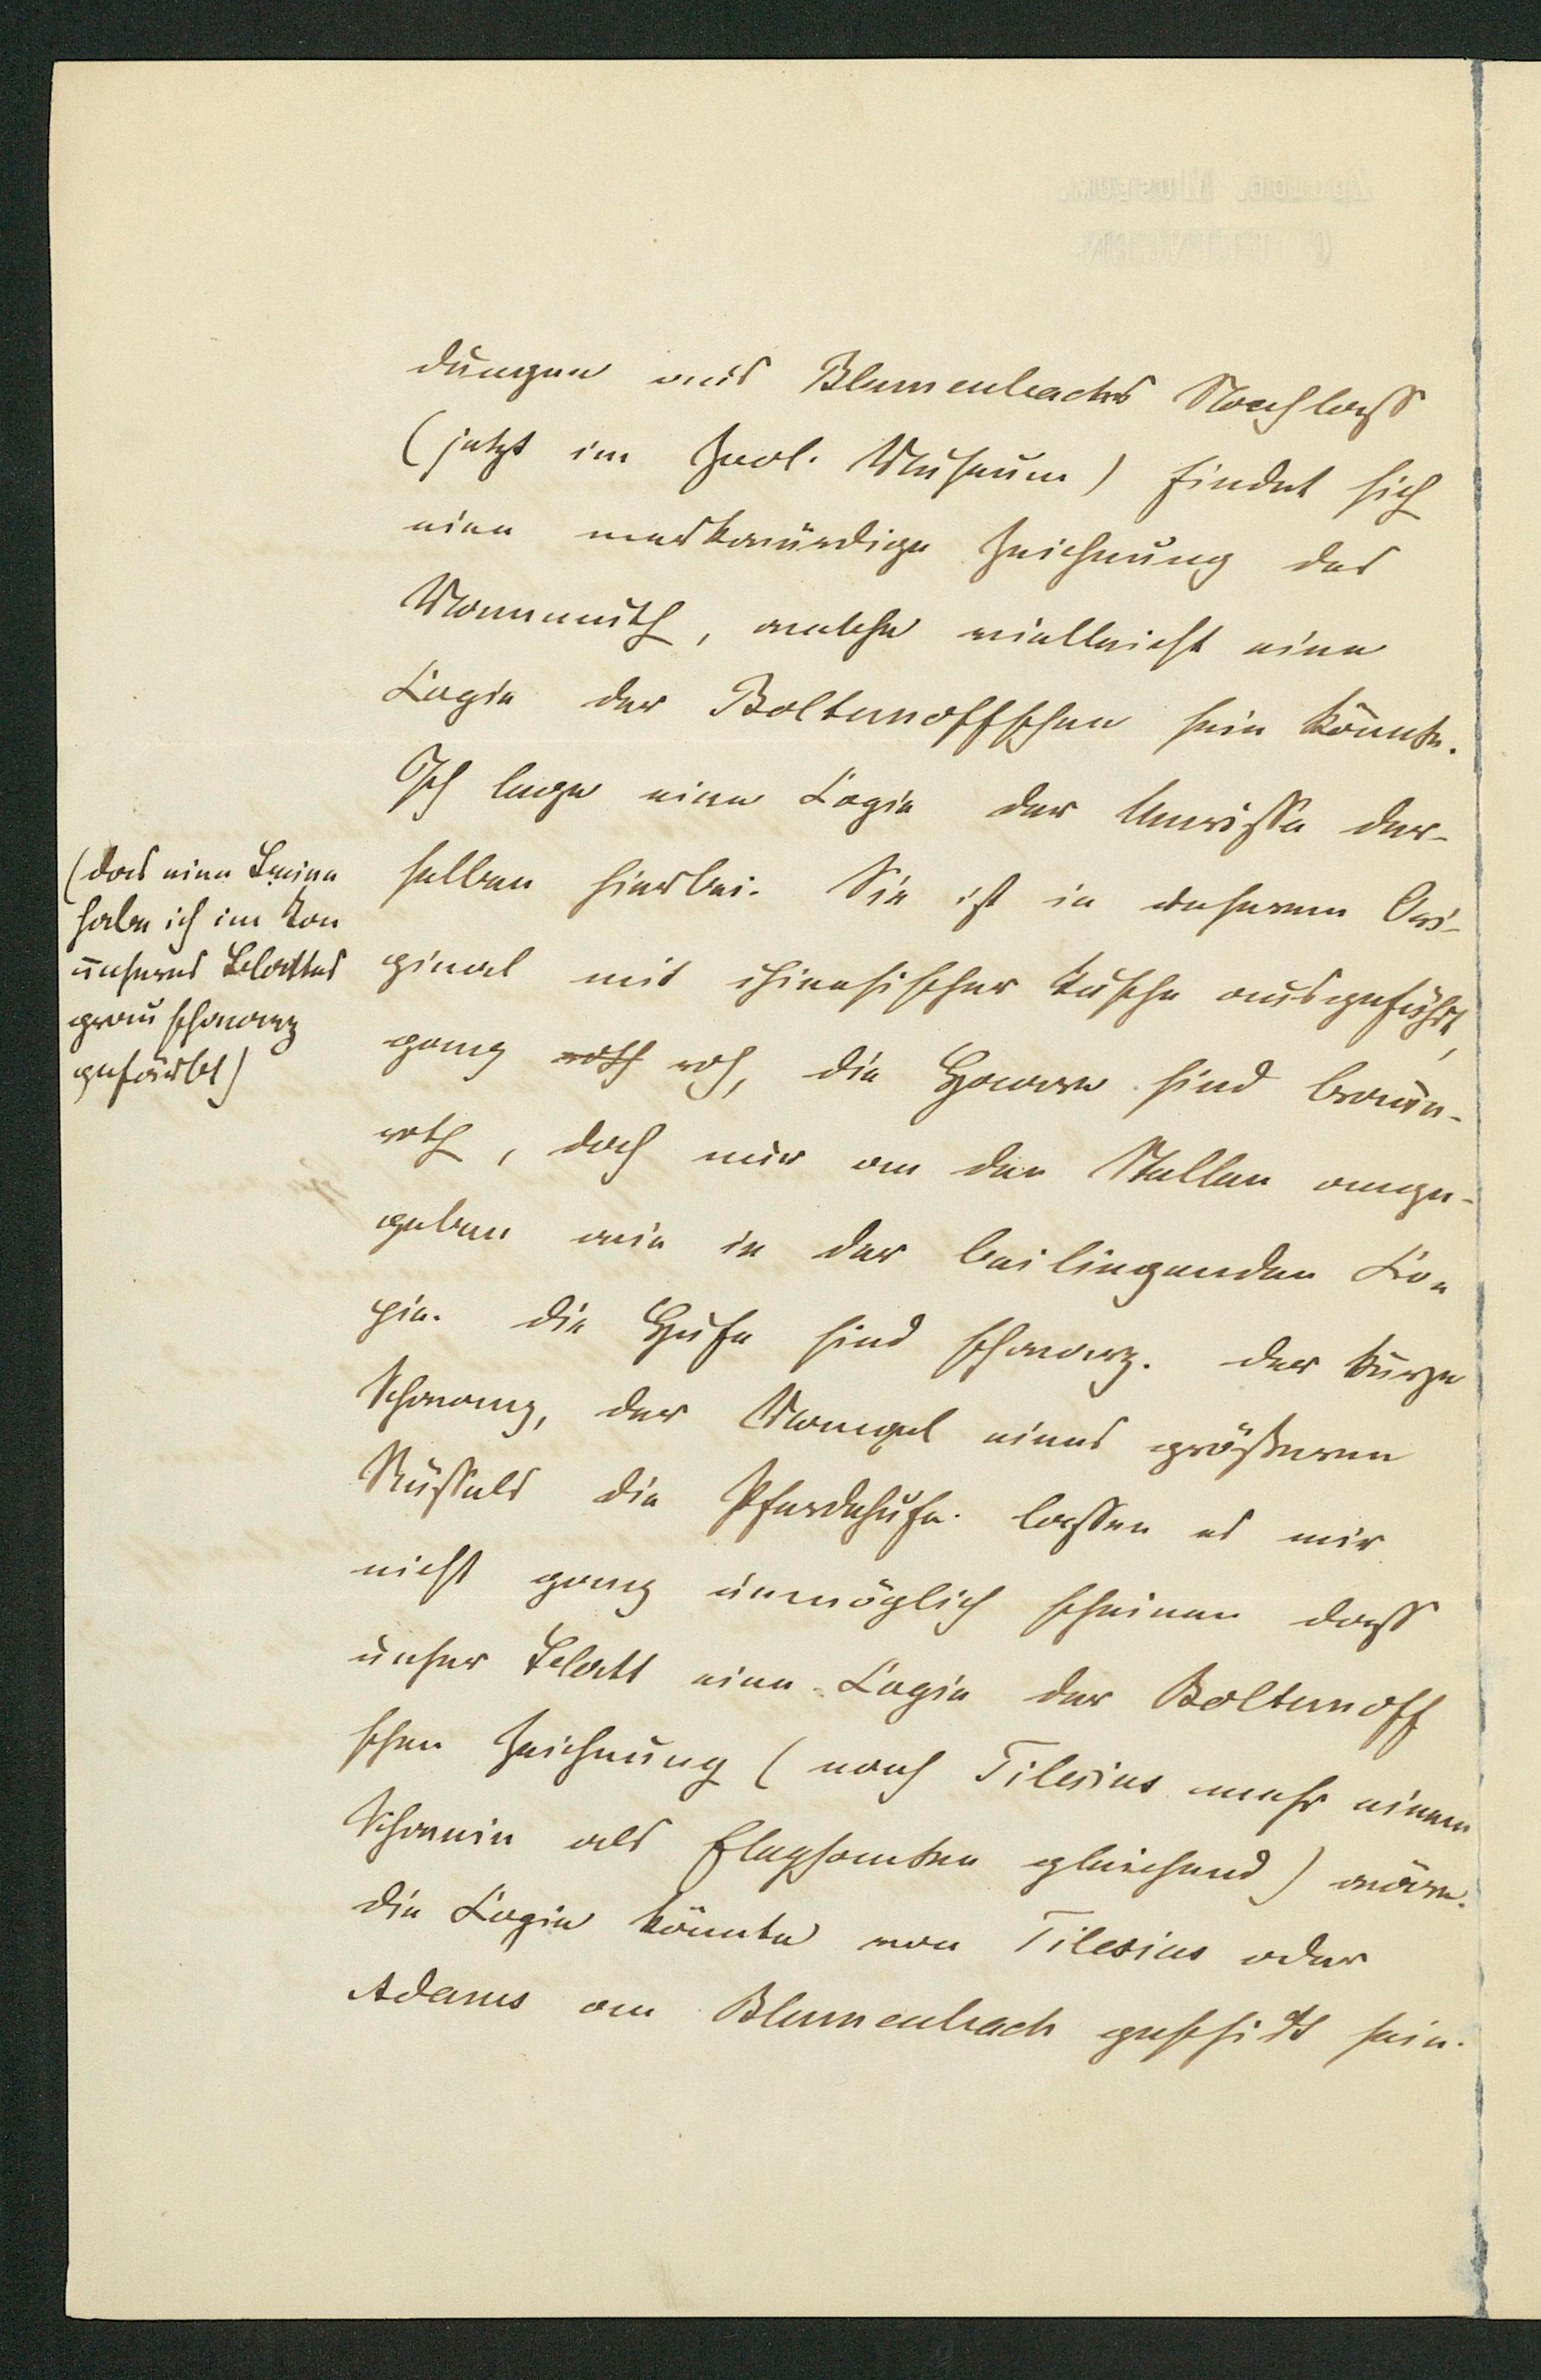 dungen aus Blumenbachs Nachlaß
(jetzt im Zool. Museum) findet sich
eine merkwürdige Zeichnung des
Mammuth, welche vielleicht eine
Copie der Boltunoffschen sein könnte.
Ich lege eine Copie der Umrisse der-
selben hierbei. Sie ist in unserem Ori-
ginal mit chinesischer Tusche ausgeführt,
ganz roth roh, die Haare sind braun-
roth, doch nur an den Stellen ange-
geben wie in der beiliegenden Co-
pie. Die Hufe sind schwarz. Der kurze
Schwanz, der Mangel eines größeren
Rüssels die Pferdehufe. lassen es mir
nicht ganz unmöglich scheinen daß
unser Blatt eine Copie der Boltunoff
schen Zeichnung (nach Tilesius mehr einem
Schwein als Elephanten gleichend) wäre.
Die Copie könnte von Tilesius oder
Adams an Blumenbach geschickt sein.
(das eine Bein
habe ich im Ton
unseres Blattes
grau schwarz
gefärbt)